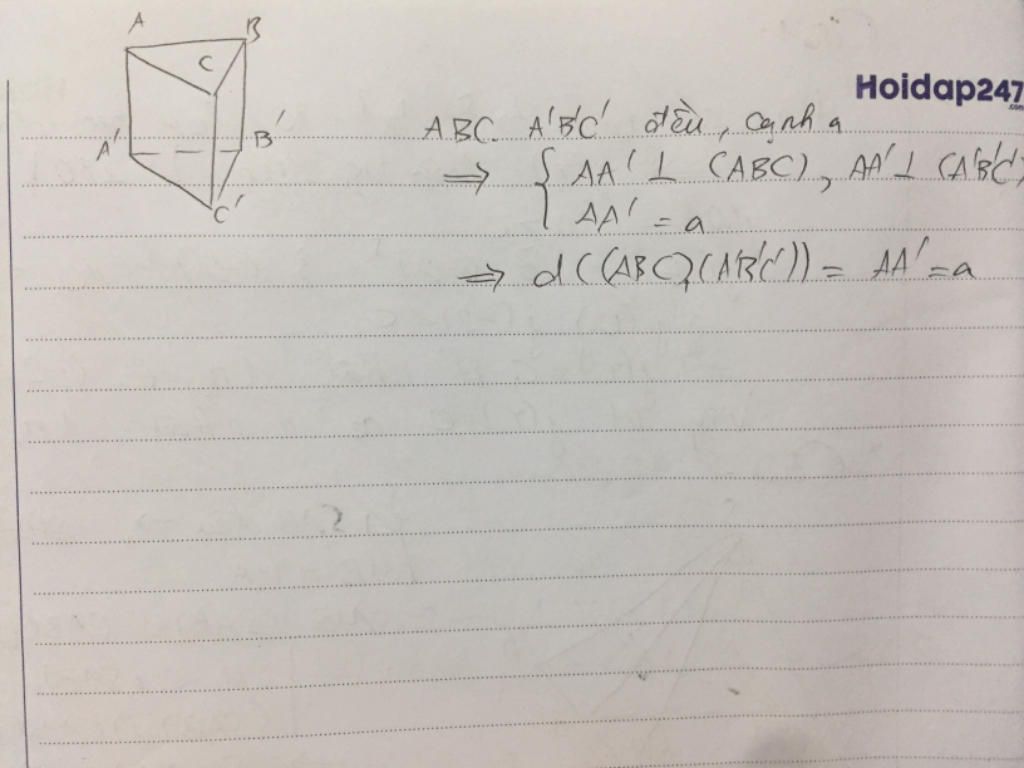 A
B
C
Hoidap247
.com
A'
B'
C'
ABC. A'B'C' đều, cạnh a
⇒ { AA' ⊥ (ABC), AA' ⊥ (A'B'C')
AA' = a
⇒ d((ABC),(A'B'C')) = AA' = a